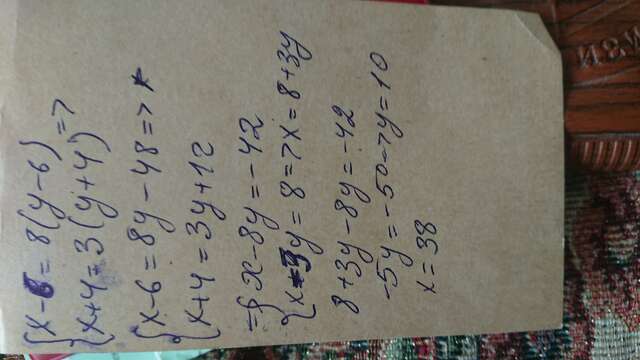 {x-6=8(y-6)
{x+4=3(y+4) =>
{x-6=8y-48=>
{x+4=3y+12
={x-8y=-42
{x-3y=8=>x=8+3y
8+3y-8y=-42
-5y=-50->y=10
x=38